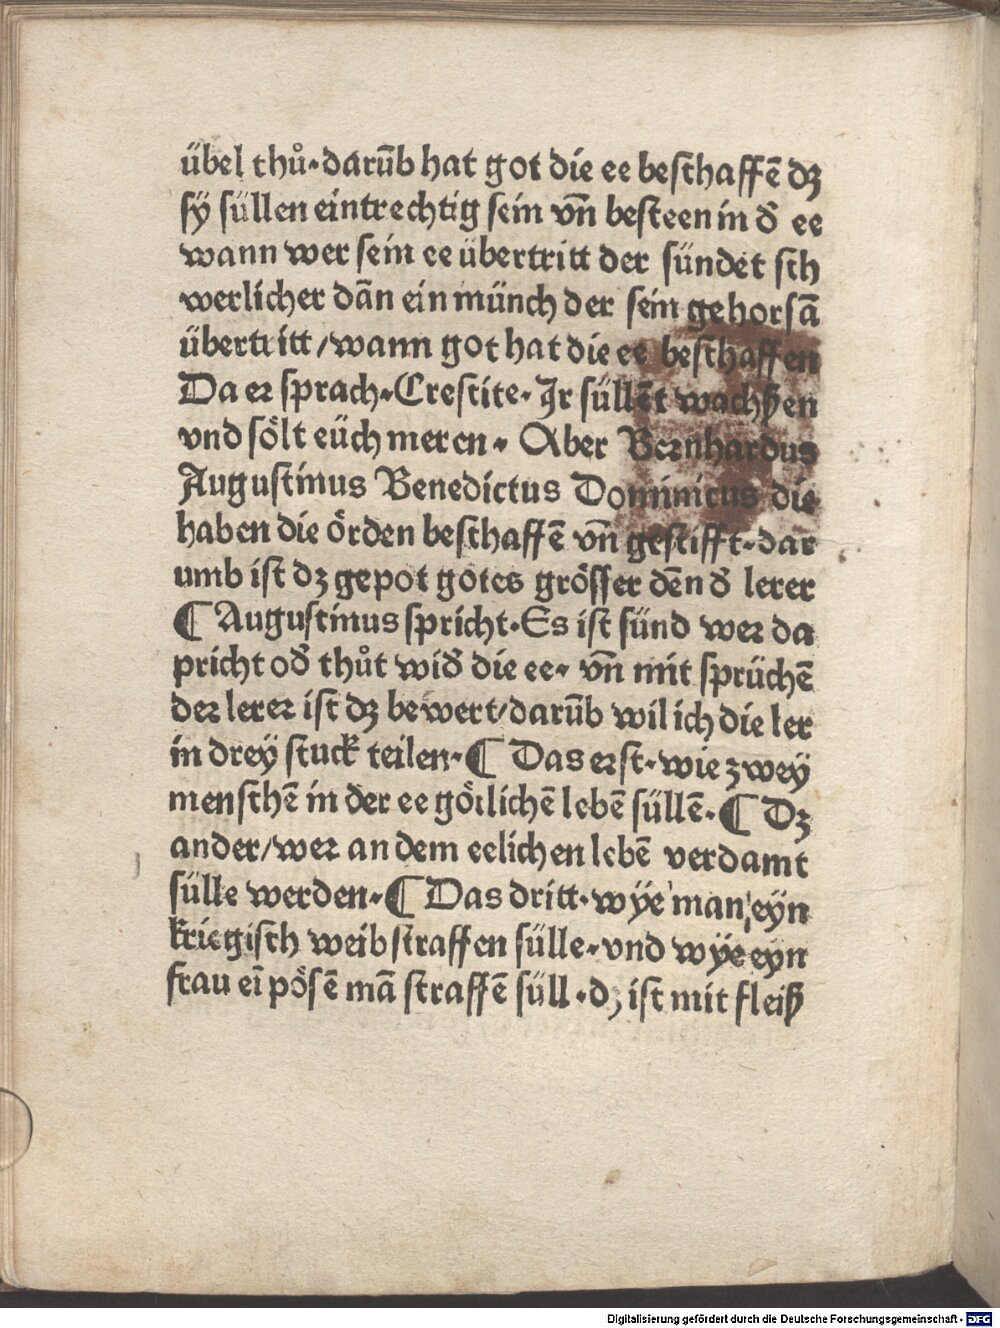 übel thů·darūb hat got die ee beschaffē dꝫ
sÿ süllen eintrechtig sein vn̄ besteen in đ ee
wann wer sein ee übertritt der sündet sch
werlicher dān ein münch der sein gehorsā
übertritt/wann got hat die ee beschaffen
Da er sprach·Crescite·Jr süllēt wachßen
vnd sölt eüch meren·Aber Bernhardus
Augustinus Benedictus Dominicus die
haben die örden beschaffē vn̄ gestifft·dar
umb ist dꝫ gepot gotes grösser dēn đ lerer
¶ Augustinus spricht·Es ist sünd wer da
pricht ođ thůt wiđ die ee·vn̄ mit sprüchē
der lerer ist dꝫ bewert/darūb wil ich die ler
in dreÿ stuck teilen·¶ Das erst·wie zweÿ
menschē in der ee götlichē lebē süllē·¶ Dꝫ
ander/wer an dem eelichen lebē verdamt
sülle werden·¶ Das dritt·wÿe man eÿn
kriegisch weib straffen sülle·vnd wÿe eÿn
frau eī pösē mā straffē süll·dꝫ ist mit fleiß
Digitalisierung gefördert durch die Deutsche Forschungsgemeinschaft - DFG